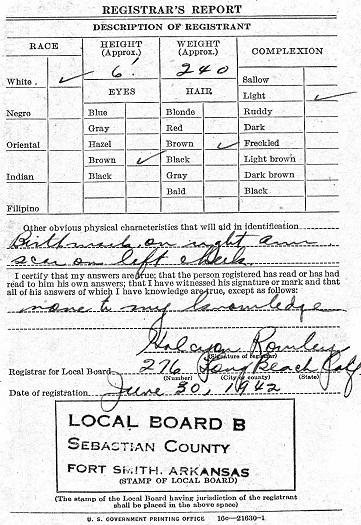 REGISTRAR'S REPORT
DESCRIPTION OF REGISTRANT
RACE HEIGHT (Approx.) WEIGHT (Approx.) COMPLEXION
6' 240
White . ✓ EYES HAIR Sallow
Light ✓
Negro Blue Blonde Ruddy
Gray Red Dark
Oriental Hazel Brown ✓ Freckled
Brown ✓ Black Light brown
Indian Black Gray Dark brown
Bald Black
Filipino
Other obvious physical characteristics that will aid in identification
Birthmark on right arm
scar on left cheek
I certify that my answers are true; that the person registered has read or has had
read to him his own answers; that I have witnessed his signature or mark and that
all of his answers of which I have knowledge are true, except as follows:
none to my knowledge
Halcyon
(Signature of registrar)
Registrar for Local Board 276 Long Beach Calif
(Number) (City or county) (State)
Date of registration June 30, 1942
LOCAL BOARD B
SEBASTIAN COUNTY
FORT SMITH, ARKANSAS
(STAMP OF LOCAL BOARD)
(The stamp of the Local Board having jurisdiction of the registrant
shall be placed in the above space)
U. S. GOVERNMENT PRINTING OFFICE 16—21630-1